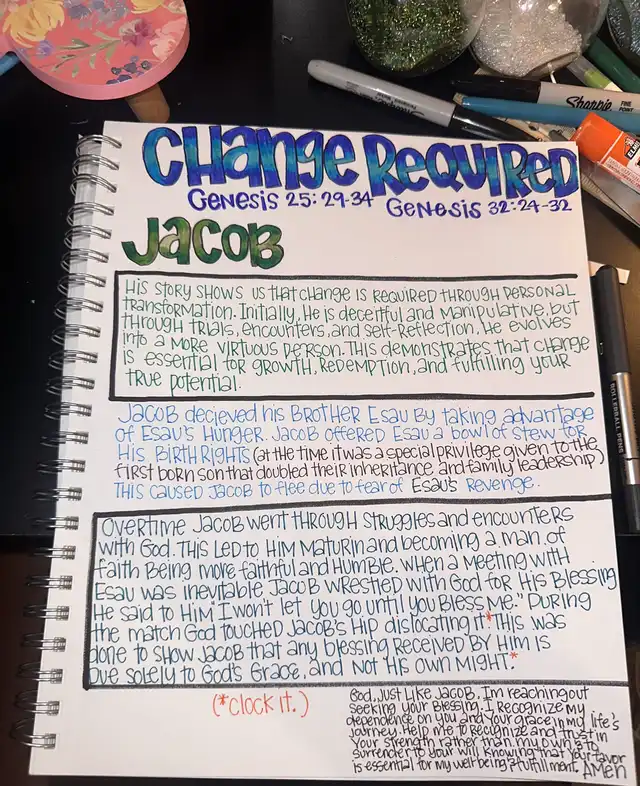 CHange REQUIReD
Genesis 25:29-34 Genesis 32:24-32
Jacob
His story shows us that change is required through personal
transformation. Initially, He is deceitful and manipulative, but
through trials, encounters, and self-reflection, He evolves
into a more virtuous person. This demonstrates that change
is essential for growth, redemption, and fulfilling your
true potential.
Jacob decieved his Brother Esau by taking advantage
of Esau's Hunger. Jacob offered Esau a bowl of stew for
His Birth Rights (at the time it was a special privilege given to the
first born son that doubled their inheritance and family leadership)
This caused Jacob to flee due to fear of Esau's Revenge.
Overtime Jacob went through struggles and encounters
with God. This led to Him maturin and becoming a man of
faith being more faithful and humble. When a meeting with
Esau was inevitable Jacob wrestled with God for His Blessing
He said to Him "I won't let you go until you Bless Me." During
the match God touched Jacob's Hip dislocating it* This was
done to show Jacob that any blessing received by Him is
Due solely to God's Grace, and not His own might.*
(*clock it.)
God, just like Jacob, Im reaching out
seeking your Blessing. I Recognize my
dependence on you and your grace in my life's
journey. Help me to recognize and trust in
your strength rather than my own & to
surrender to your will, knowing that your favor
is essential for my well-being & fulfillment. Amen
Sharpie FINE POINT
ROLLERBALL PENS